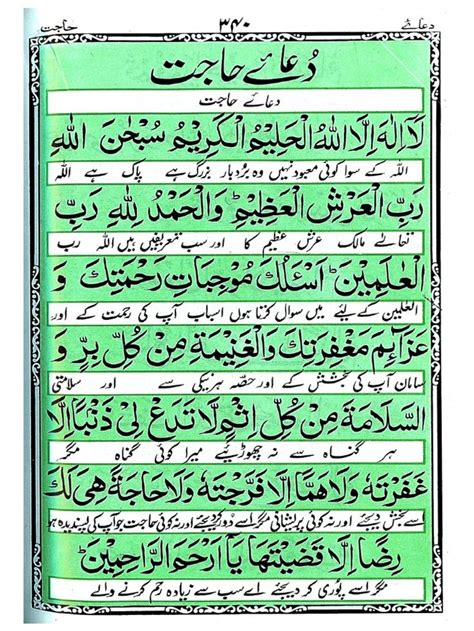 دعائے ۳۴۰ حاجت
دُعائے حاجت
دعائے حاجت
لَا اِلٰهَ اِلَّا اللهُ الْحَلِيْمُ الْكَرِيْمُ سُبْحٰنَ اللهِ
اللہ کے سوا کوئی معبود نہیں وہ بردبار بزرگ ہے پاک ہے اللہ
رَبِّ الْعَرْشِ الْعَظِيْمِ وَالْحَمْدُ لِلّٰهِ رَبِّ
مالک عرش عظیم کا اور سب تعریفیں ہیں اللہ رب
الْعٰلَمِيْنَ اَسْئَلُكَ مُوْجِبَاتِ رَحْمَتِكَ وَ
العٰلمین کے لیئے میں سوال کرتا ہوں اسباب آپ کی رحمت کے اور
عَزَآئِمَ مَغْفِرَتِكَ وَالْغَنِيْمَةَ مِنْ كُلِّ بِرٍّ وَ
سامان آپ کی بخشش کے اور حصّہ ہر نیکی سے اور سلامتی
السَّلَامَةَ مِنْ كُلِّ اِثْمٍ لَا تَدَعْ لِيْ ذَنْبًا اِلَّا
ہر گناہ سے نہ چھوڑیئے میرا کوئی گناہ مگر
غَفَرْتَهٗ وَلَا هَمًّا اِلَّا فَرَّجْتَهٗ وَلَا حَاجَةً هِيَ لَكَ
اسے بخش دیجئے اور نہ کوئی پریشانی مگر اسے دور کر دیجئے اور نہ کوئی حاجت جو آپ کی پسندیدہ ہو
رِضًا اِلَّا قَضَيْتَهَا يَآ اَرْحَمَ الرَّاحِمِيْنَ
مگر اسے پوری کر دیجئے اے سب سے زیادہ رحم کرنے والے